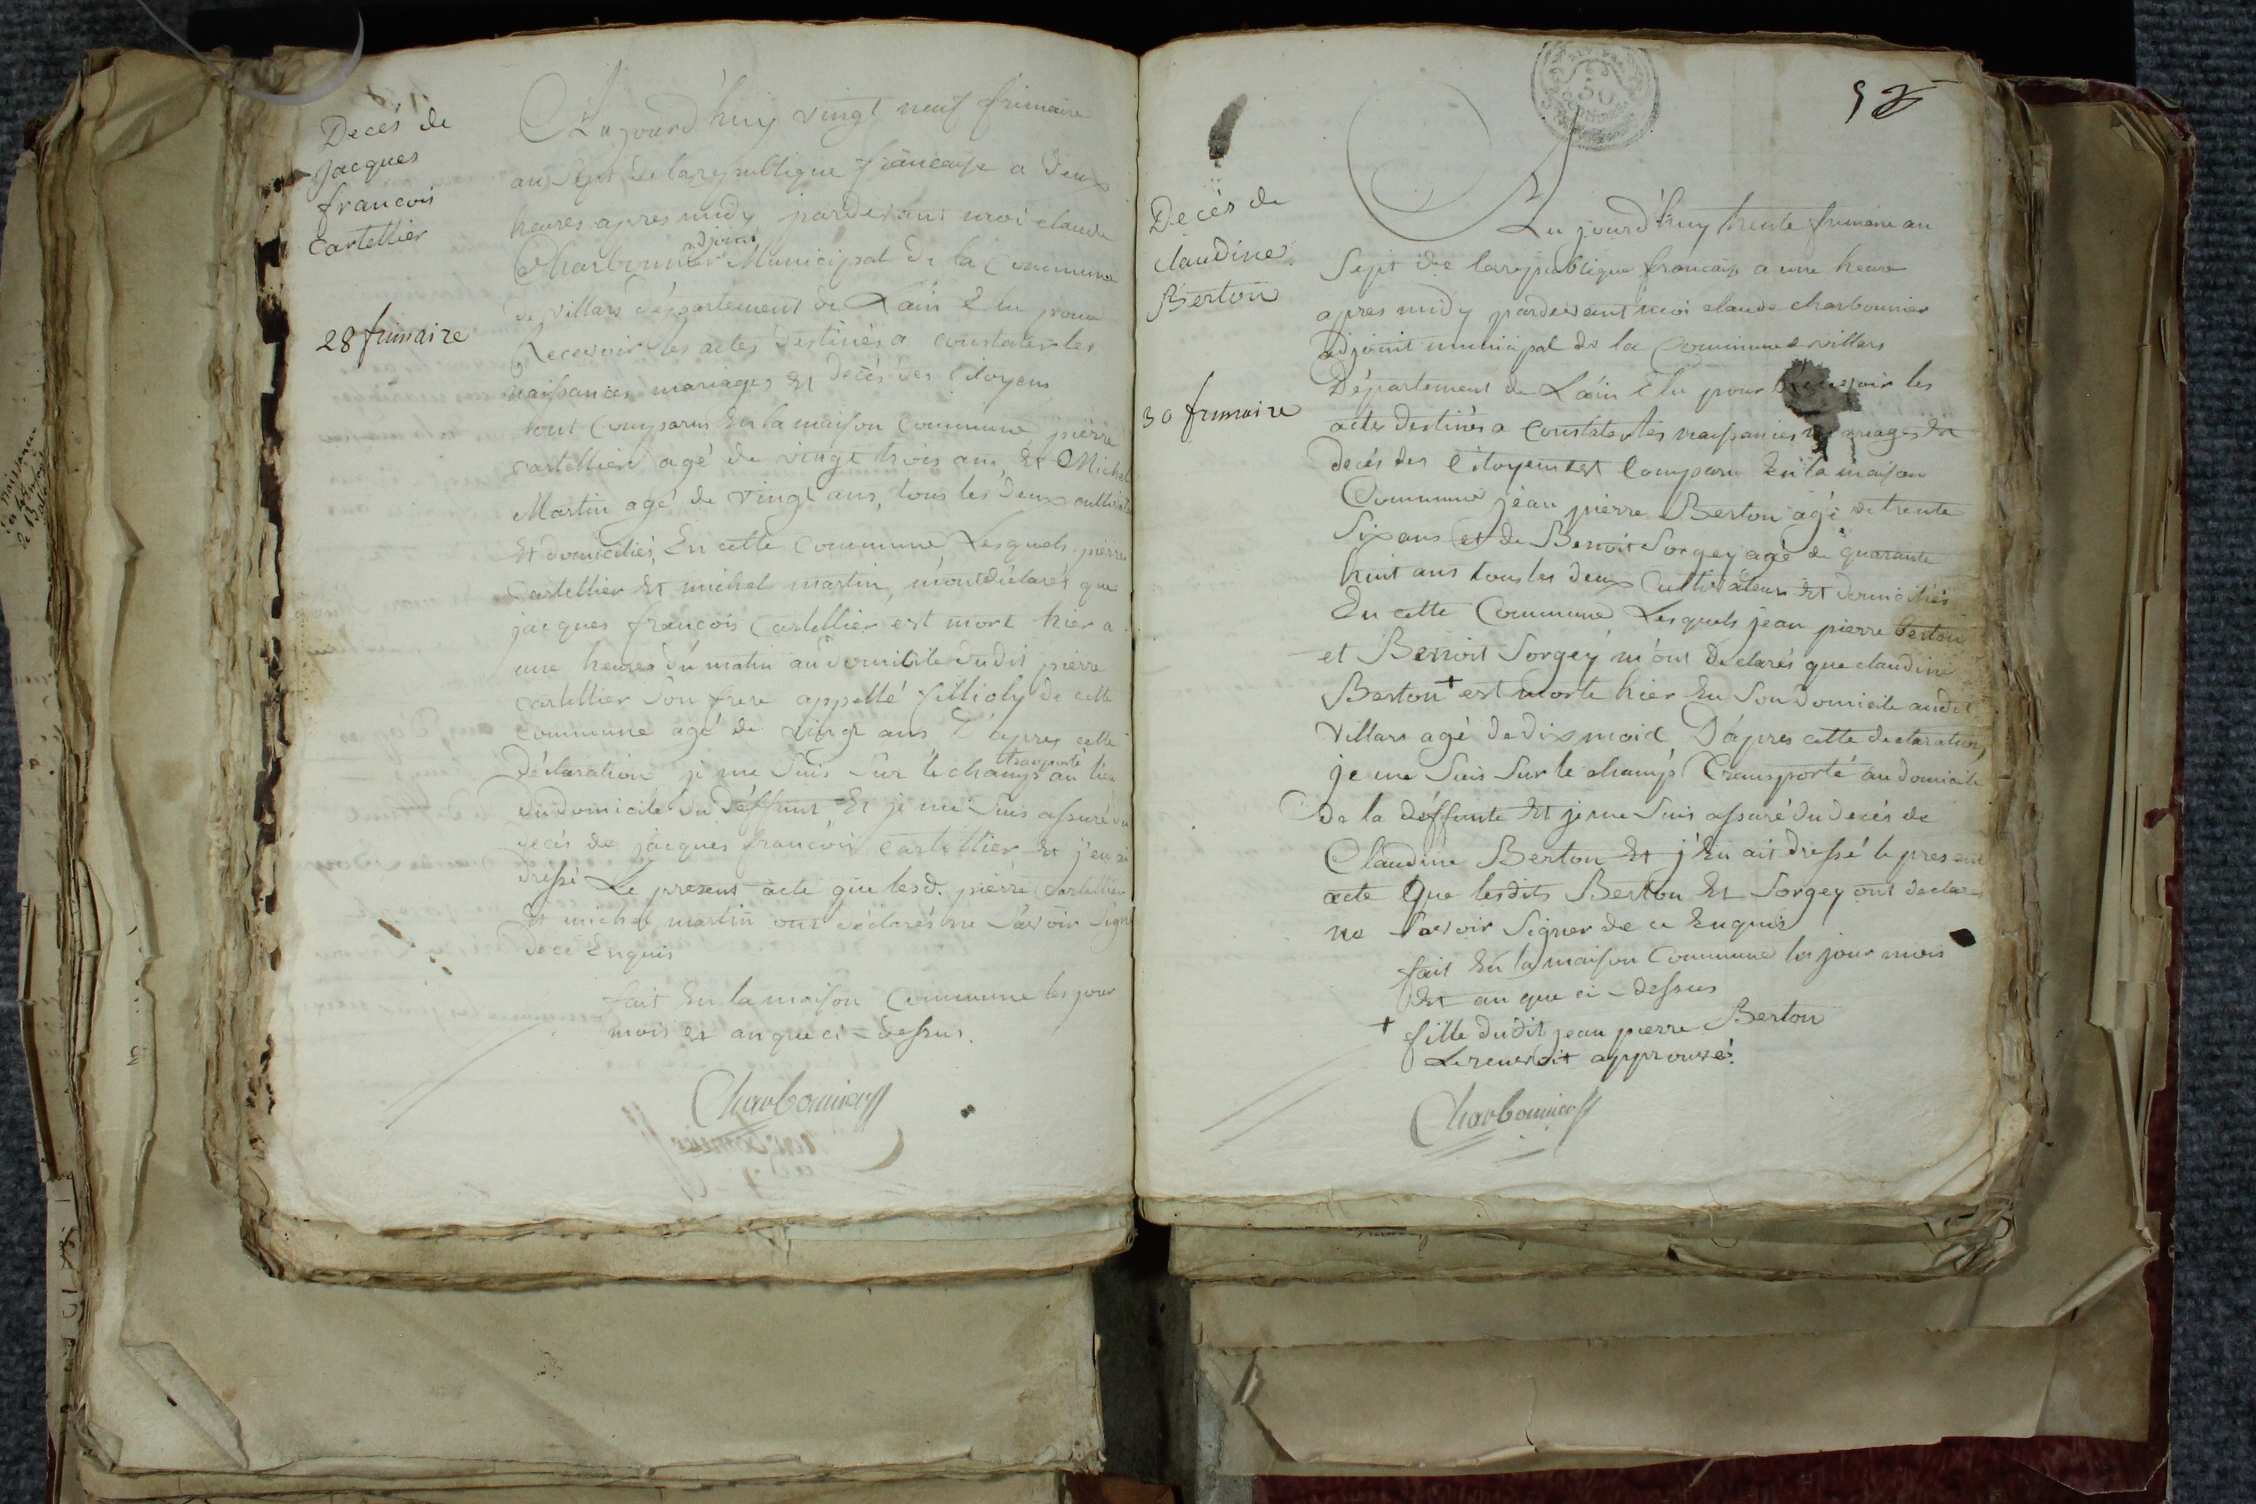 Decés de
Jacques
francois
Cartellier
28 frimaire
Aujourd'huy vingt neuf frimaire
an Sept de la republique francaise a deux
heures apres midy pardevant moi claude
Charbonnier adjoint Municipal de la Commune
de villars département de Lain Elu pour
Recevoir les actes destinés a constater les
naissances mariages Et decès des Citoyens
sont Comparus En la maison Commune pierre
cartellier agé de vingt trois ans, Et Michel
Martin agé de vingt ans, tous les deux cultivate
Et domiciliés, En cette Commune Lesquels pierre
Cartellier Et michel martin, m'ont déclarés que
jacques françois Cartellier est mort hier a
une heures du matin au domicile dudit pierre
cartellier Son frere appellé fillioly de cette
commune agé de vingt ans D'apres cette
Déclaration je me Suis Sur le champs transporté au lieu
du domicile du déffunt, Et je me Suis assuré du
decés de jacques francois Cartellier Et j'en ai
dressé Le present acte que lesd. pierre Cartellier
Et michel martin ont déclarés ne Savoir Signe
de ce Enquis
fait En la maison Commune les jour
mois et an que ci = dessus.
Charbonnier
52
Decés de
Claudine
Berton
30 frimaire
Aujourd'huy trente frimaire an
Sept de la republique francaise a une heure
apres midy pardevant moi claude charbonnier
adjoint municipal de la Commune de villars
Département de Lain Elu pour recevoir les
actes destinés a Constater les naissances mariages Et
decés des Citoyens Est Comparu En la maison
Commune jean pierre Berton agé de trente
Six ans et de Benoit Sorgey agé de quarante
huit ans tous les deux Cultivateurs Et domiciliés
En cette Commune Lesquels jean pierre berton
et Benoit Sorgey m'ont declarés que claudine
Berton + est morte hier En Son domicile audit
villars agé de dix mois D'apres cette declaration,
je me Suis Sur le champs transporté au domicile
De la déffunte Et je me Suis assuré du decés de
Claudine Berton Et j'En ait dressé le present
acte Que lesdits Berton Et Sorgey ont declarés
ne Savoir Signer de ce Enquis
fait En la maison Commune les jour mois
Et an que ci - dessus
+ fille dudit jean pierre Berton
Le renvoit approuvé.
Charbonnier